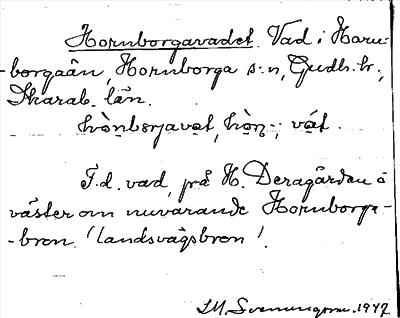 Hornborgavadet. Vad i Horn-
borgaån, Hornborga s:n, Gudh. hr.,
Skarab. län.
hònborjavat, hòn-, vát.
F.d. vad, på H. Deragården å
väster om nuvarande Hornborga-
-bron (landsvägsbron).
1947